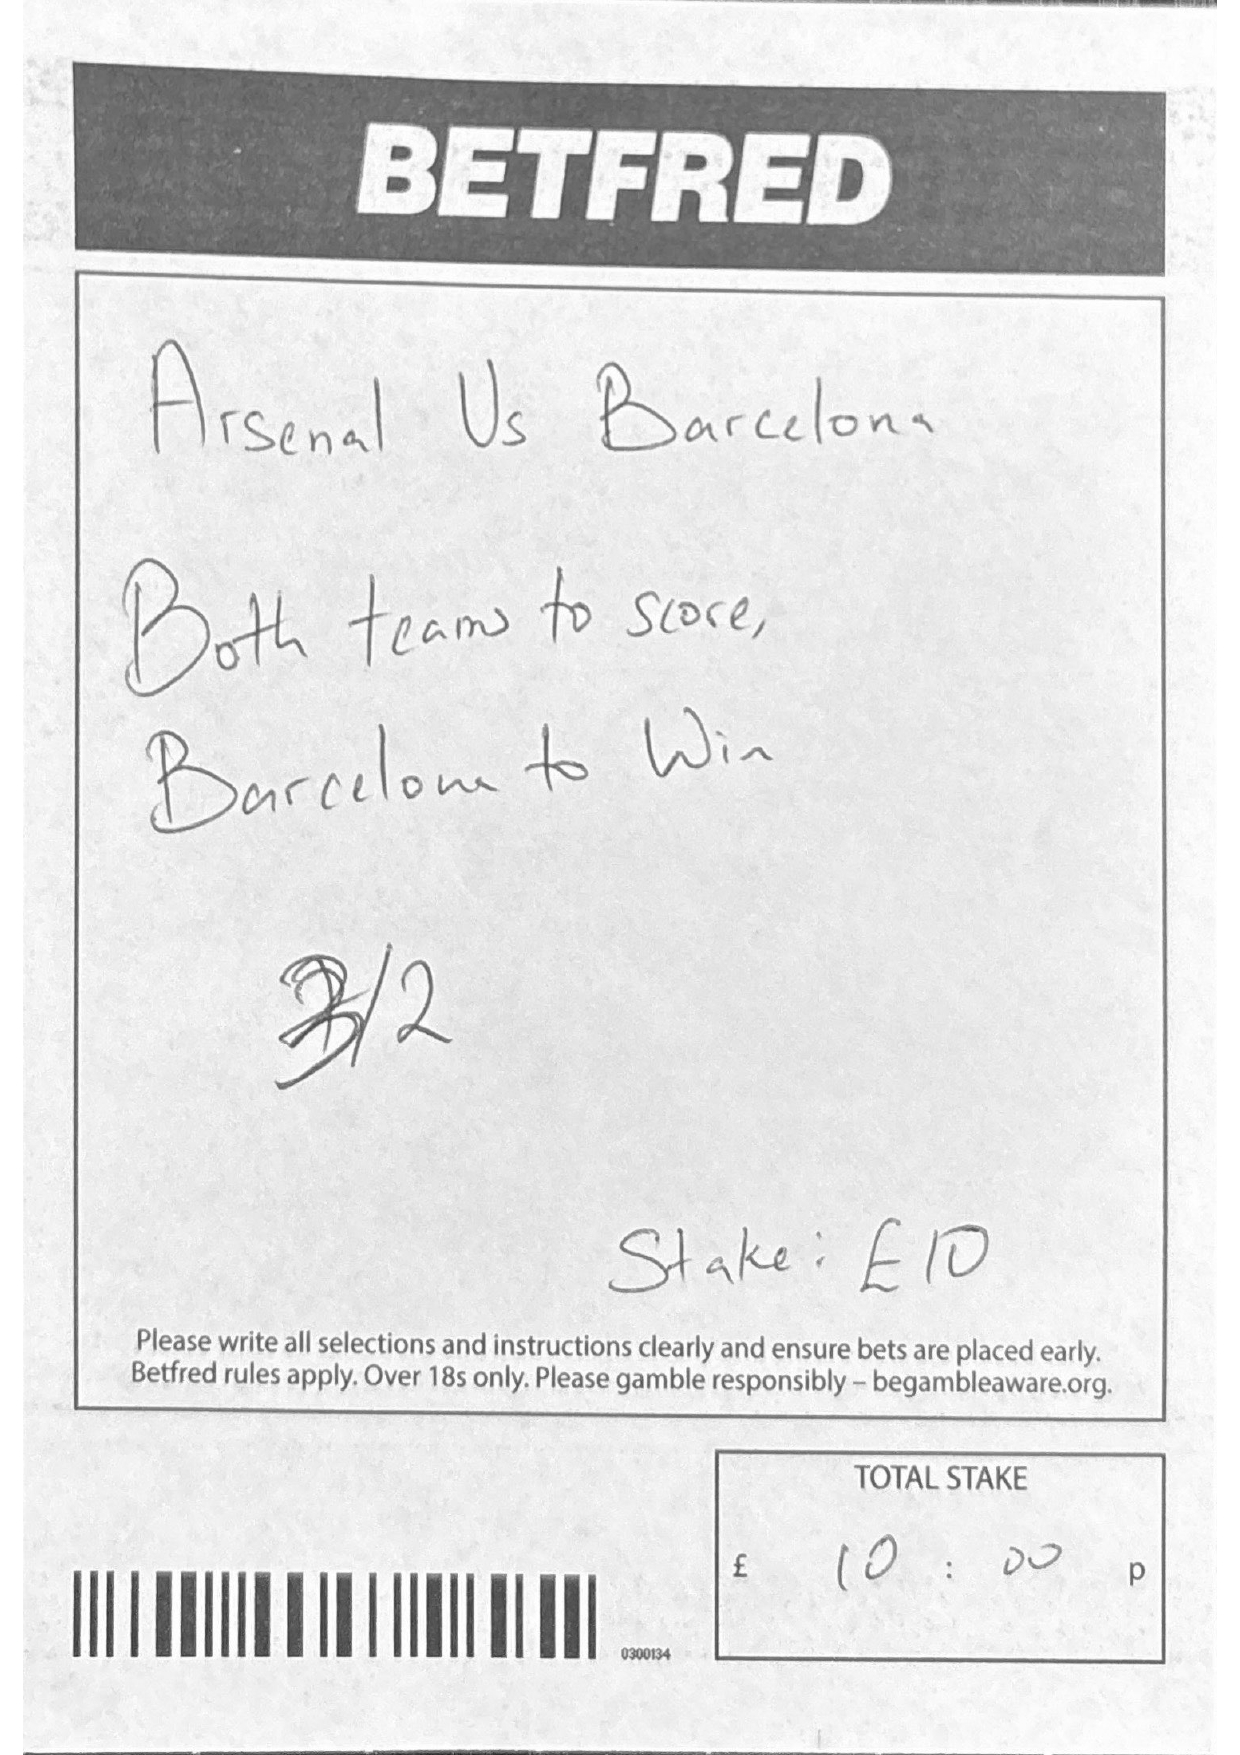 BETFRED
Arsenal Vs Barcelona
Both teams to score,
Barcelona to Win
3/2
Stake: £10
Please write all selections and instructions clearly and ensure bets are placed early.
Betfred rules apply. Over 18s only. Please gamble responsibly – begambleaware.org.
TOTAL STAKE
£ 10 : 00 p
0300134